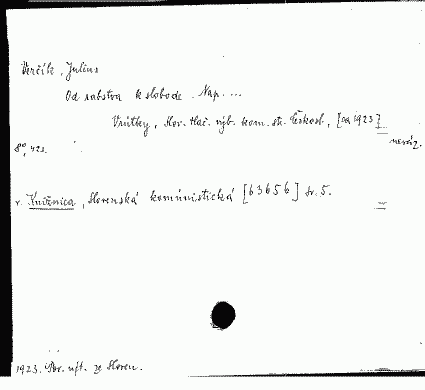 Verčík, Julius
Od rabstva k slobode. Nap. ...
Vrútky, Slov. tlač. výb. kom. str. Českosl., [ca 1923]
neváz.
8°, 42 s.
v. Knižnica, Slovenská komúnistická [63656] sv. 5.
1923. Pov. výt. ze Sloven.